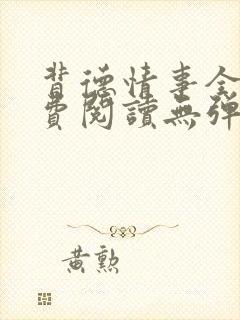 背德情事全
費閱讀無彈
黃勲